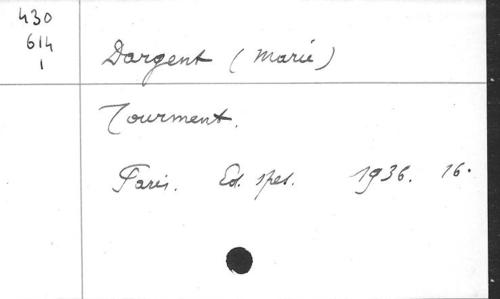 430
614
1
Dargent (Marie)
Tourment.
Paris. Ed. spes. 1936. 16°